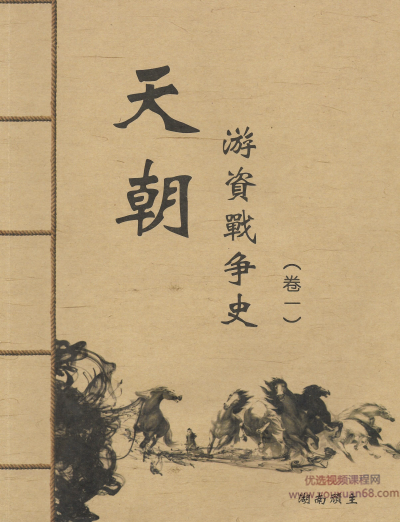 天朝
游資戰争史
（卷一）
优选视频课程网
www.youxuan68.com
湖南頑主